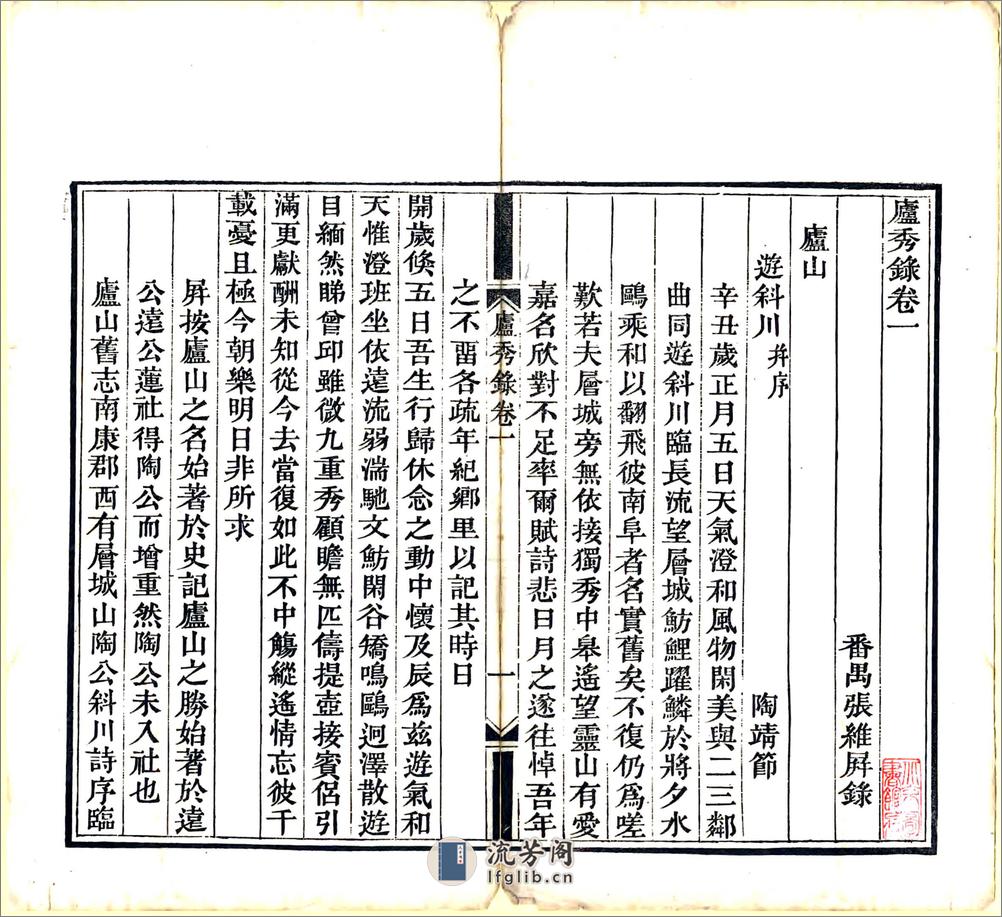 廬秀錄卷一
番禺張維屛錄
廬山
遊斜川 并序 陶靖節
辛丑歲正月五日天氣澄和風物閑美與二三鄰
曲同遊斜川臨長流望層城魴鯉躍鱗於將夕水
鷗乘和以翻飛彼南阜者名實舊矣不復仍爲嗟
歎若夫層城旁無依接獨秀中皋遙望靈山有愛
嘉名欣對不足率爾賦詩悲日月之遂往悼吾年
廬秀錄卷一 一
之不畱各疏年紀鄉里以記其時日
開歲倏五日吾生行歸休念之動中懷及辰爲茲遊氣和
天惟澄班坐依遠流弱湍馳文魴閑谷矯鳴鷗迥澤散遊
目緬然睇曾邱雖微九重秀顧瞻無匹儔提壺接賓侶引
滿更獻酬未知從今去當復如此不中觴縱遙情忘彼千
載憂且極今朝樂明日非所求
屛按廬山之名始著於史記廬山之勝始著於遠
公遠公蓮社得陶公而增重然陶公未入社也
廬山舊志南康郡西有層城山陶公斜川詩序臨
流芳阁
lfglib.cn